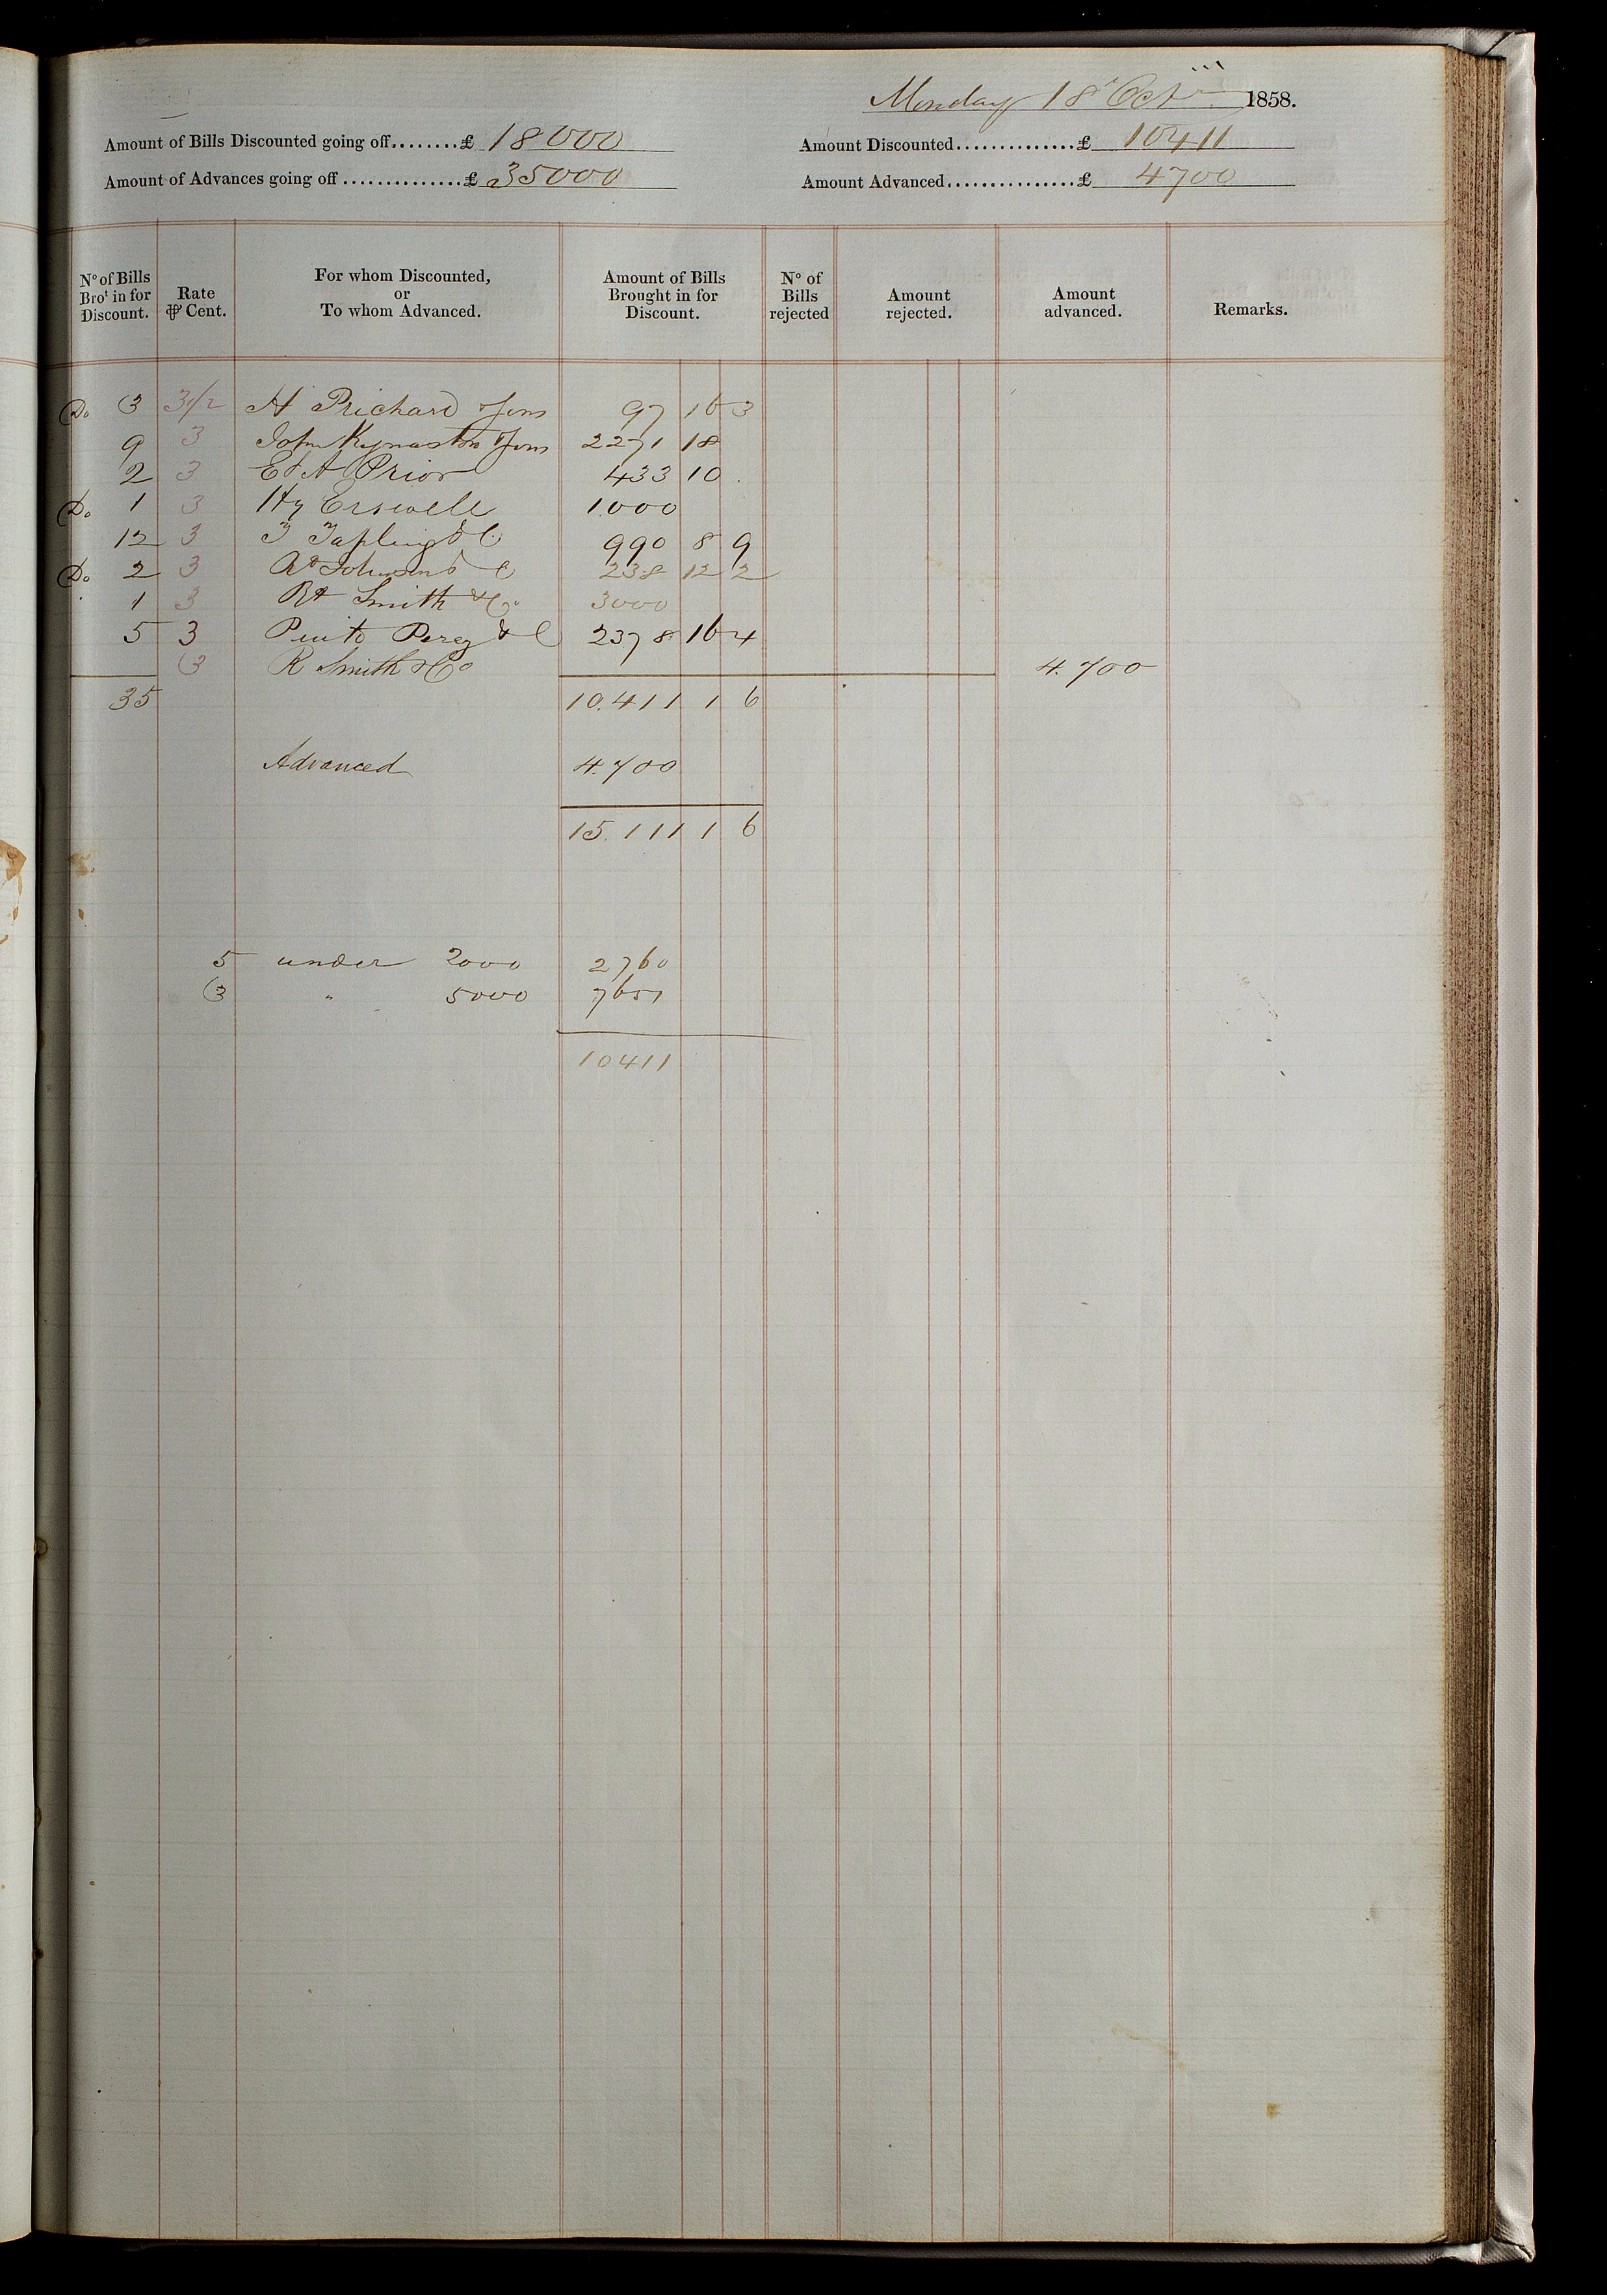 Monday 18 Oct 1858.
Amount of Bills Discounted going off........£ 18000 Amount Discounted..............£ 10411
Amount of Advances going off..............£ 35000 Amount Advanced...............£ 4700
No of Bills Brot in for Discount. Rate ⅌ Cent. For whom Discounted, or To whom Advanced. Amount of Bills Brought in for Discount. No of Bills rejected Amount rejected. Amount advanced. Remarks.
Do 3 3 1/2 H Prichard & Sons 97 16 3
9 3 John Kynaston & Sons 2271 18
2 3 E & A Prior 433 10
Do 1 3 Hy Erswell 1000
12 3 T Tapling & C 990 8 9
Do 2 3 Rd Johnson & C 238 12 2
1 3 Rt Smith & Co 3000
5 3 Pinto Perez & C 2378 16 4
3 R Smith & Co 4.700
35 10.411 1 6
Advanced 4.700
15.111 1 6
5 under 2000 2760
3 " 5000 7651
10411